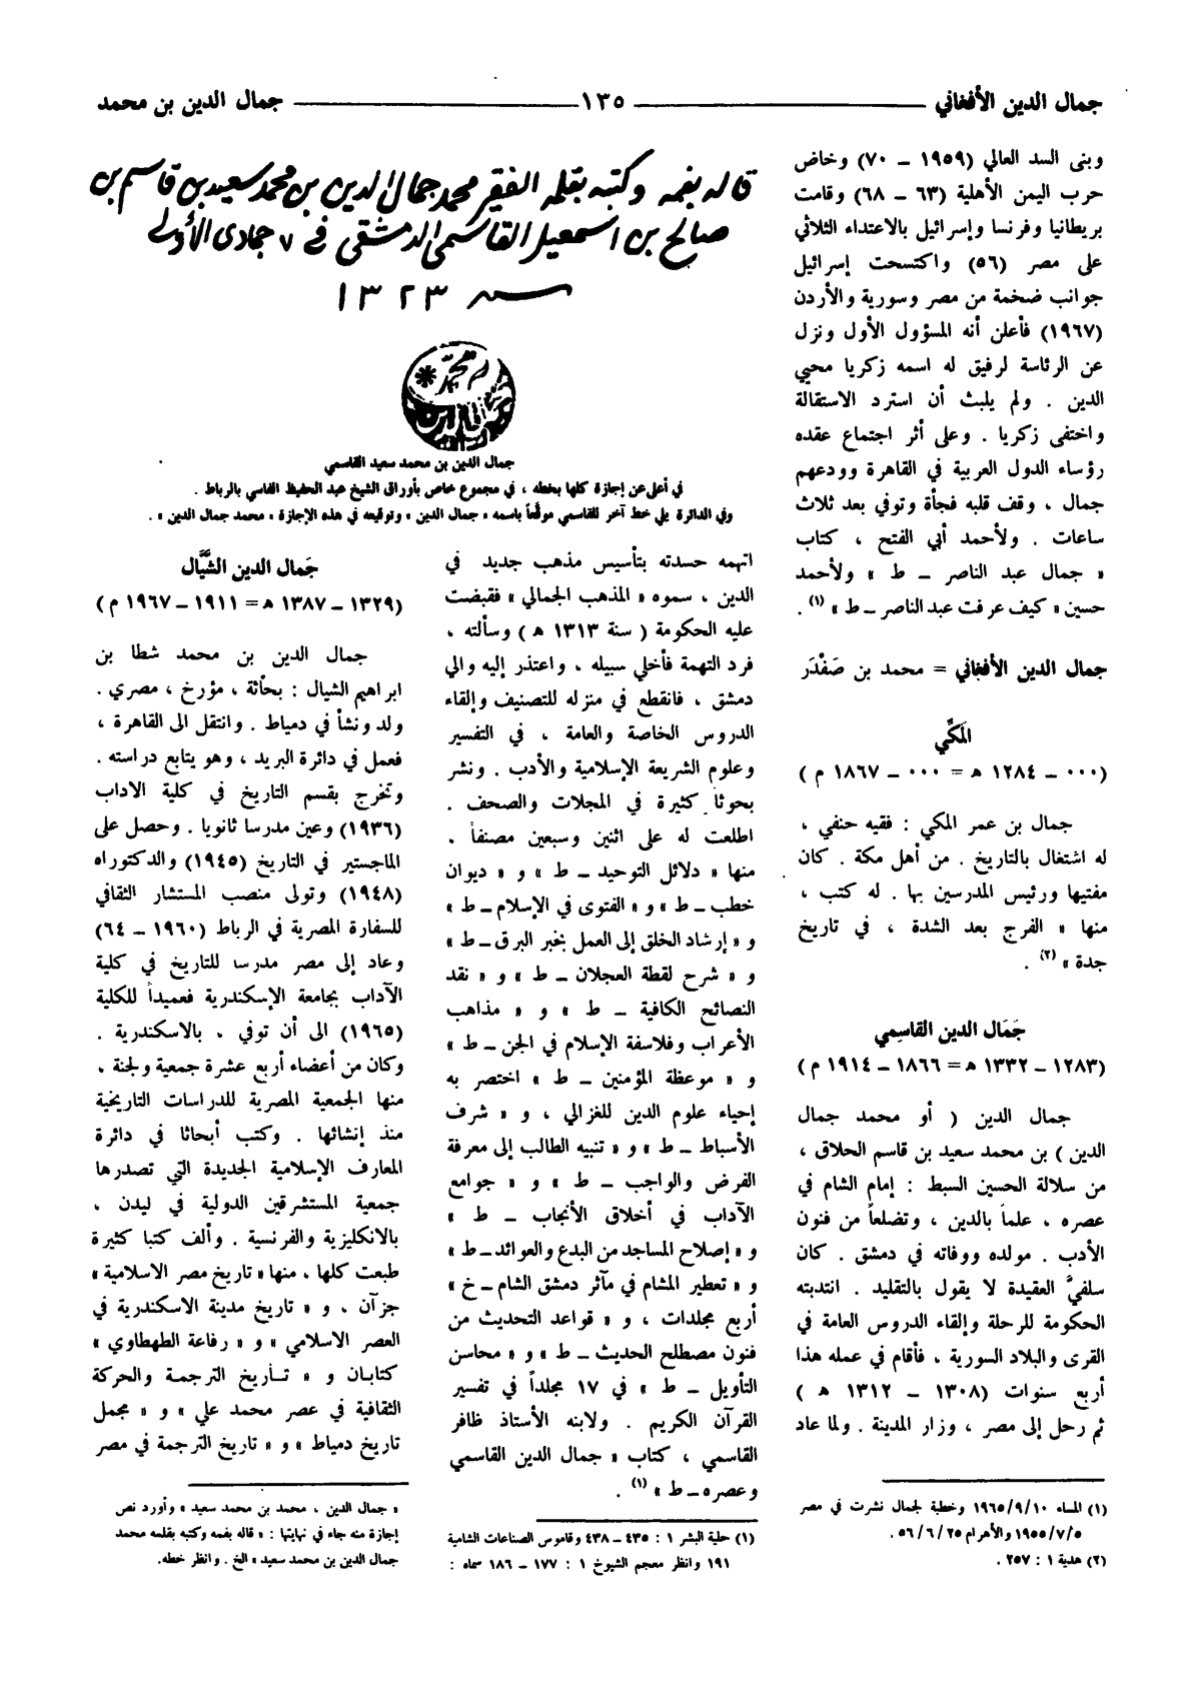 جمال الدين الأفغاني — ١٣٥ — جمال الدين بن محمد
وبنى السد العالي (١٩٥٩ ــ ٧٠) وخاض
حرب اليمن الأهلية (٦٣ ــ ٦٨) وقامت
بريطانيا وفرنسا وإسرائيل بالاعتداء الثلاثي
على مصر (٥٦) واكتسحت إسرائيل
جوانب ضخمة من مصر وسورية والأردن
(١٩٦٧) فأعلن أنه المسؤول الأول ونزل
عن الرئاسة لرفيق له اسمه زكريا محيي
الدين . ولم يلبث أن استرد الاستقالة
واختفى زكريا . وعلى أثر اجتماع عقده
رؤساء الدول العربية في القاهرة وودعهم
جمال ، وقف قلبه فجأة وتوفي بعد ثلاث
ساعات . ولأحمد أبي الفتح ، كتاب
« جمال عبد الناصر ــ ط » ولأحمد
حسين « كيف عرفت عبد الناصر ــ ط » (١) .
جمال الدين الأفغاني = محمد بن صَفْدَر
المَكِّي
(٠٠٠ ــ ١٢٨٤ هـ = ٠٠٠ ــ ١٨٦٧ م)
جمال بن عمر المكي : فقيه حنفي ،
له اشتغال بالتاريخ . من أهل مكة . كان
مفتيها ورئيس المدرسين بها . له كتب ،
منها « الفرج بعد الشدة ، في تاريخ
جدة » (٢) .
جَمَال الدين القاسِمي
(١٢٨٣ ــ ١٣٣٢ هـ = ١٨٦٦ ــ ١٩١٤ م)
جمال الدين ( أو محمد جمال
الدين ) بن محمد سعيد بن قاسم الحلاق ،
من سلالة الحسين السبط : إمام الشام في
عصره ، علماً بالدين ، وتضلعاً من فنون
الأدب . مولده ووفاته في دمشق . كان
سلفيَّ العقيدة لا يقول بالتقليد . انتدبته
الحكومة للرحلة وإلقاء الدروس العامة في
القرى والبلاد السورية ، فأقام في عمله هذا
أربع سنوات (١٣٠٨ ــ ١٣١٢ هـ )
ثم رحل إلى مصر ، وزار المدينة . ولما عاد
(١) المساء ١٩٦٥/٩/١٠ وخطبة لجمال نشرت في مصر
١٩٥٥/٧/٥ والأهرام ٥٦/٦/٢٥ .
(٢) هدية ١ : ٢٥٧ .
قاله بفمه وكتبه بقلمه الفقير محمد جمال الدين بن محمد سعيد بن قاسم بن
صالح بن اسمعيل القاسمي الدمشقي في ٧ جمادى الأولى
سنة ١٣٢٣
جمال الدين بن محمد سعيد القاسمي
في أعلى عن إجازة كلها بخطه ، في مجموع خاص بأوراق الشيخ عبد الحفيظ الفاسي بالرباط .
وفي الدائرة يلي خط آخر للقاسمي موقَّعاً باسمه « جمال الدين » وتوقيعه في هذه الإجازة « محمد جمال الدين » .
اتهمه حسدته بتأسيس مذهب جديد في
الدين ، سموه « المذهب الجمالي » فقبضت
عليه الحكومة ( سنة ١٣١٣ هـ ) وسألته ،
فرد التهمة فأخلي سبيله ، واعتذر إليه والي
دمشق ، فانقطع في منزله للتصنيف وإلقاء
الدروس الخاصة والعامة ، في التفسير
وعلوم الشريعة الإسلامية والأدب . ونشر
بحوثاً كثيرة في المجلات والصحف .
اطلعت له على اثنين وسبعين مصنفاً .
منها « دلائل التوحيد ــ ط » و « ديوان
خطب ــ ط » و « الفتوى في الإسلام ــ ط »
و « إرشاد الخلق إلى العمل بخبر البرق ــ ط »
و « شرح لقطة العجلان ــ ط » و « نقد
النصائح الكافية ــ ط » و « مذاهب
الأعراب وفلاسفة الإسلام في الجن ــ ط »
و « موعظة المؤمنين ــ ط » اختصر به
إحياء علوم الدين للغزالي ، و « شرف
الأسباط ــ ط » و « تنبيه الطالب إلى معرفة
الفرض والواجب ــ ط » و « جوامع
الآداب في أخلاق الأنجاب ــ ط »
و « إصلاح المساجد من البدع والعوائد ــ ط »
و « تعطير المشام في مآثر دمشق الشام ــ خ »
أربع مجلدات ، و « قواعد التحديث من
فنون مصطلح الحديث ــ ط » و « محاسن
التأويل ــ ط » في ١٧ مجلداً في تفسير
القرآن الكريم . ولابنه الأستاذ ظافر
القاسمي ، كتاب « جمال الدين القاسمي
وعصره ــ ط » (١) .
(١) حلية البشر ١ : ٤٣٥ ــ ٤٣٨ وقاموس الصناعات الشامية
١٩١ وانظر معجم الشيوخ ١ : ١٧٧ ــ ١٨٦ سماه :
جَمال الدين الشَّيَّال
(١٣٢٩ ــ ١٣٨٧ هـ = ١٩١١ ــ ١٩٦٧ م)
جمال الدين بن محمد شطا بن
ابراهيم الشيال : بحاثة ، مؤرخ ، مصري .
ولد ونشأ في دمياط . وانتقل الى القاهرة ،
فعمل في دائرة البريد ، وهو يتابع دراسته .
وتخرج بقسم التاريخ في كلية الاداب
(١٩٣٦) وعين مدرسا ثانويا . وحصل على
الماجستير في التاريخ (١٩٤٥) والدكتوراه
(١٩٤٨) وتولى منصب المستشار الثقافي
للسفارة المصرية في الرباط (١٩٦٠ ــ ٦٤)
وعاد إلى مصر مدرسا للتاريخ في كلية
الآداب بجامعة الإسكندرية فعميداً للكلية
(١٩٦٥) الى أن توفي ، بالاسكندرية .
وكان من أعضاء أربع عشرة جمعية ولجنة ،
منها الجمعية المصرية للدراسات التاريخية
منذ إنشائها . وكتب أبحاثا في دائرة
المعارف الإسلامية الجديدة التي تصدرها
جمعية المستشرقين الدولية في ليدن ،
بالانكليزية والفرنسية . وألف كتبا كثيرة
طبعت كلها ، منها « تاريخ مصر الاسلامية »
جزآن ، و « تاريخ مدينة الاسكندرية في
العصر الاسلامي » و « رفاعة الطهطاوي »
كتابان و « تاريخ الترجمة والحركة
الثقافية في عصر محمد علي » و « مجمل
تاريخ دمياط » و « تاريخ الترجمة في مصر
« جمال الدين ، محمد بن محمد سعيد » وأورد نص
إجازة منه جاء في نهايتها : « قاله بفمه وكتبه بقلمه محمد
جمال الدين بن محمد سعيد » الخ . وانظر خطه.